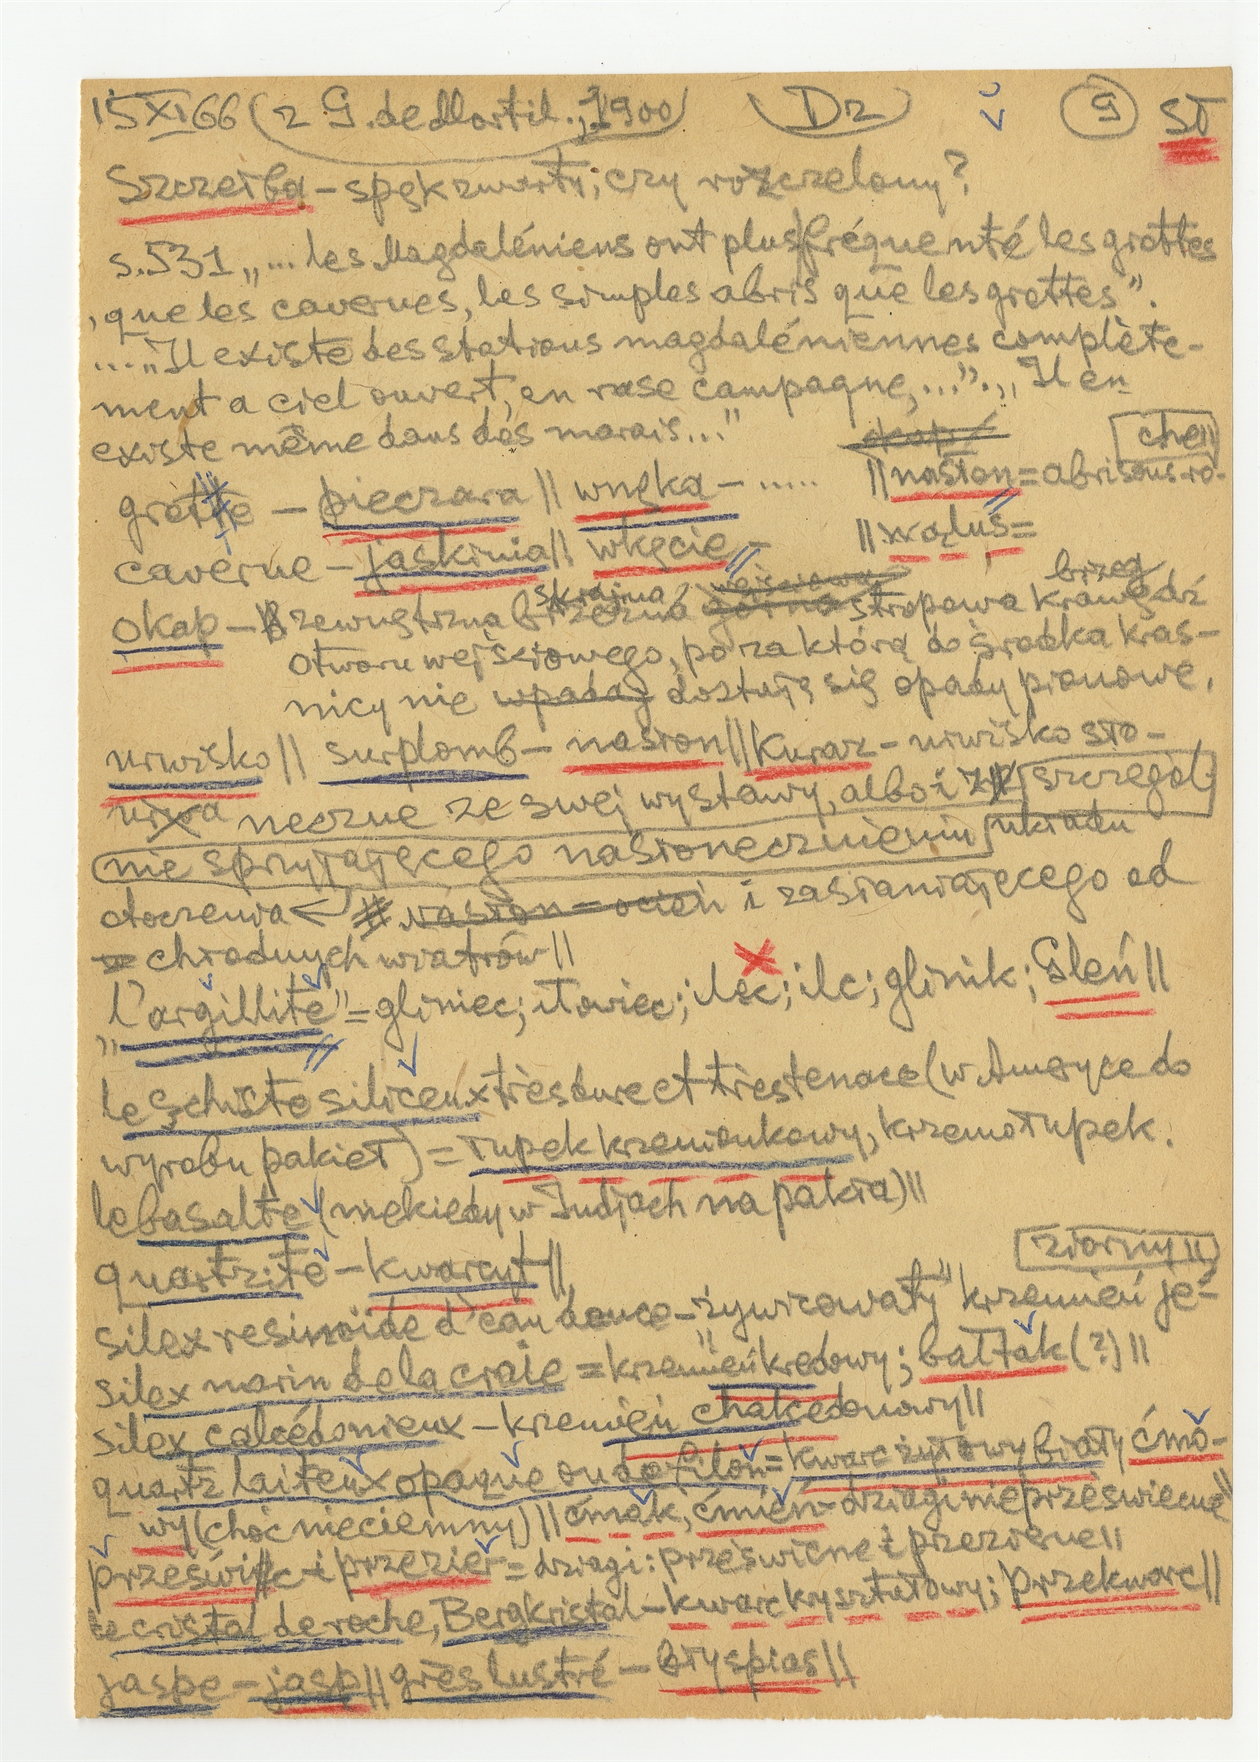 15 XI 66 (z G. de Mortil., 1900) Dz 9 ST
Szczerba – spęk zwarty; czy rozczelony?
s.531 „... les Magdaléniens ont plus fréquenté les grottes
que les cavernes, les simples abris que les grottes".
...„Il existe des stations magdaléniennes complète-
ment a ciel ouvert, en rase campagne,...". „Il en
existe même dans des marais..."
okap/ che||
grotte – pieczara || wnęka – ..... || nasłon = abri sous ro-
caverne – jaskinia || wkęcie – ||
skrajna wejściowa brzeg
okap – zewnętrzna brzeżna górna stropowa krawędź
otworu wejściowego, poza którą do środka kras-
nicy nie wpadaj dostają się opady pionowe.
urwisko || surplomb – nasłon || Kuraz – urwisko sło-
neczne ze swej wystawy, albo i szczegól
nie sprzyjającego nasłonecznieniu układu
otoczenia nasłon = ocień i zasłaniającego od
chłodnych wiatrów ||
„l'argillite" = gliniec; iłowiec; ilec; ilc; glinik; Gleń ||
le schiste siliceux très dur et très tenace (w Ameryce do
wyrobu pakieł) = łupek krzemionkowy, krzemołupek.
le basalte (niekiedy w Indjach na pakła) ||
quartzite – kwarcyt ||
ziorny ||
silex resinoide d'eau douce – „żywicowaty" krzemień je-
silex marin de la craie = krzemień kredowy; bałtak (?) ||
silex calcédonieux – krzemień chalcedonowy ||
quartz laiteux opaque ou de filon = kwarc żyłowy biały ćmo-
wy (choć nieciemny) || ćmak, ćmień – dziagi nieprzeświecne ||
przeświec i przezier = dziagi: prześwicne i przezierne ||
le cristal de roche, Bergkristal – kwarc kryształowy; Przekwarc ||
jaspe – jasp || grès lustré – Błyspias ||